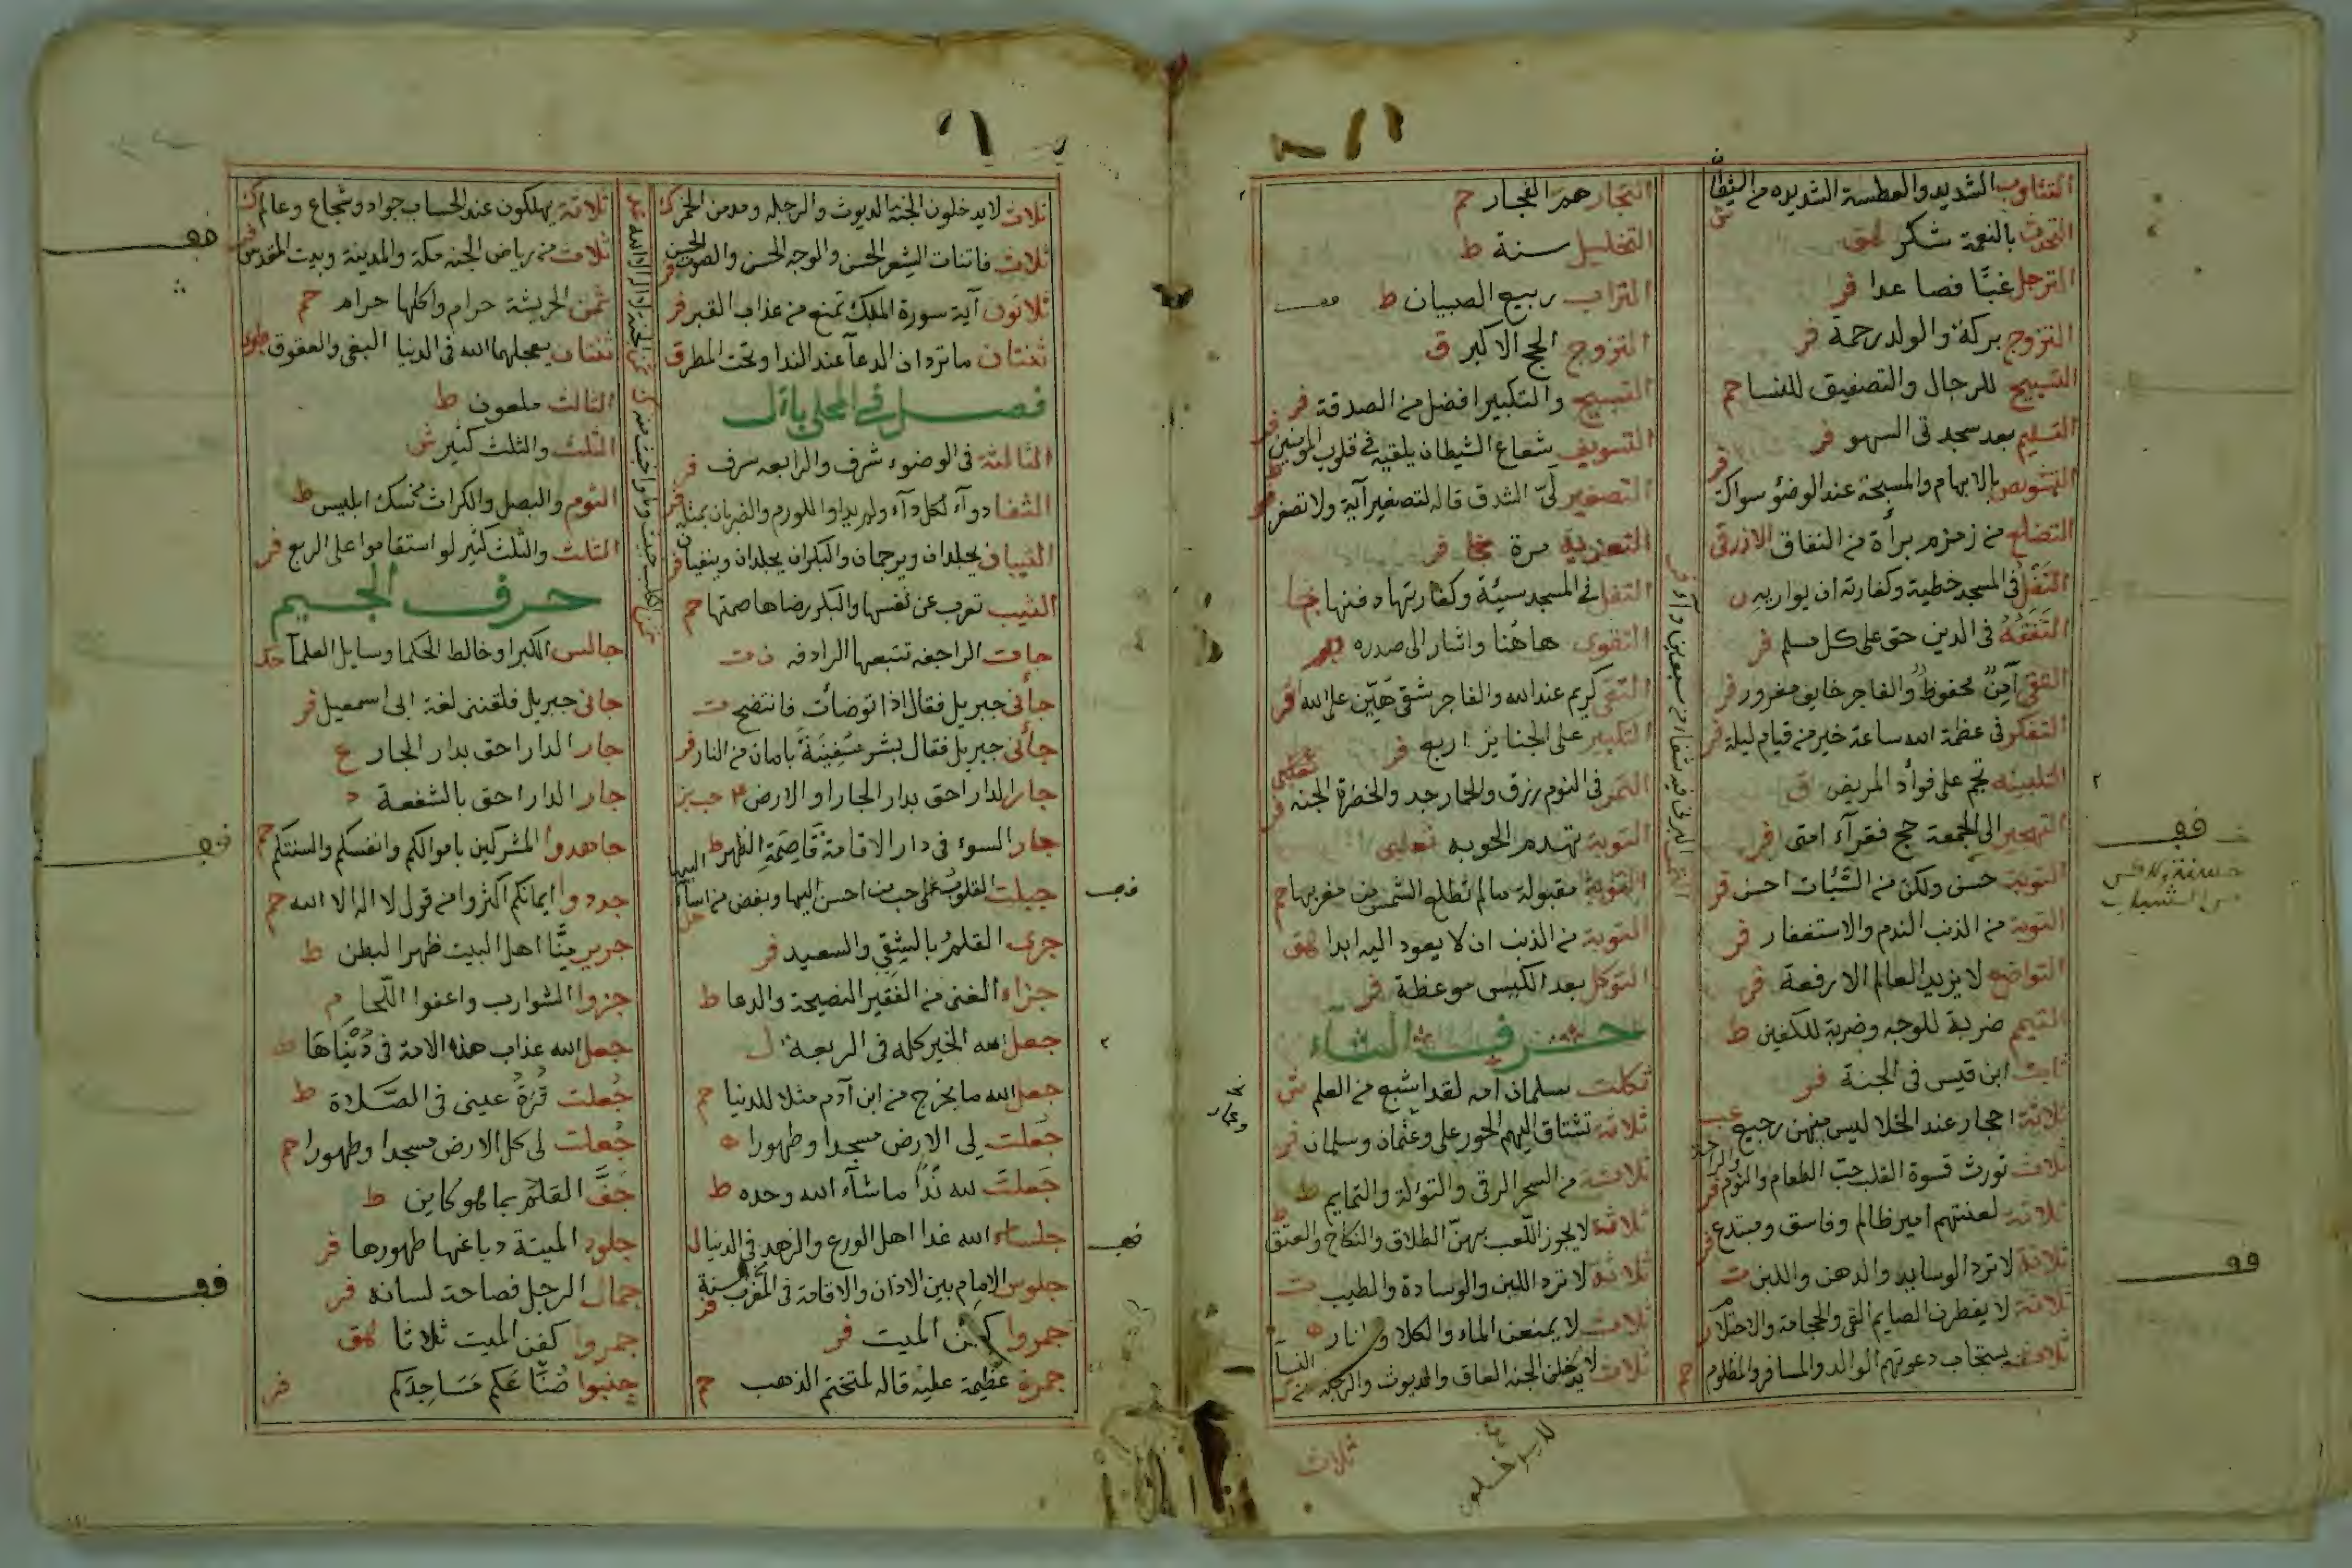 التثاوب الشديد والعطسة الشديده من الشيطان
التحدث بالنعمة شكر هق
الترجل غبّا فصاعدا فر
التزوج بركة والولد رحمة فر
التسبيح للرجال والتصفيق للنسا حم
التسليم بعد سجدتى السهو فر
بالابهام والمسبحة عند الوضؤ سواك
التضلع من زمزم برأة من النفاق الازرقى
التفل فى المسجد خطية وكفارته ان يواريه ن
التفقه فى الدين حق على كل مسلم فر
التقى آمن محفوظ والفاجر خايف مغرور فر
التفكر فى عظمة الله ساعة خير من قيام ليلة فر
التلبينه تجم على فوأد المريض ق
التهجير الى الجمعة حج فقرآء امتى فر
التوبة حسن ولكن من الشبّان احسن فر
التوبة من الذنب الندم والاستغفار فر
التواضع لا يزيد العالم الا رفعة فر
التيمم ضربة للوجه وضربة للكفين ط
ثابت ابن قيس فى الجنة فر
ثلاثة احجار عند الخلا ليس منهن رجيع
ثلاث تورث قسوة القلب حبّ الطعام والنوم والراحة فر
ثلاثة لعنتهم امير ظالم وفاسق ومبتدع فر
ثلاثة لا ترد الوسايد والدهن واللبن ت
ثلاثة لا يفطرن الصايم القى والحجامة والاحتلام
ثلاثة يستجاب دعوتهم الوالد والمسافر والمظلوم حم
التجار هم الفجار حم
التخليل سنة ط
التراب ربيع الصبيان ط
التزوج الحج الاكبر ق
التسبيح والتكبير افضل من الصدقة فر
التسويف شعاع الشيطان يلقيه فى قلوب المومنين فر
التصغير لىّ الشدق قاله لتصغير آية ولا تصعر
التعزية مرة فر
التفل فى المسجد سيئة وكفارتها دفنها
التقوى هاهنا واشار الى صدره
التقى كريم عند الله والفاجر شقى هيّن على الله فر
التكبير على الجنايز اربع فر
التمر فى النوم رزق والخمار جد والخضرة الجنه
التوبة تهدم الحوبه ثعلبى
التوبة مقبولة مالم تطلع الشمس من مغربها حم
التوبة من الذنب ان لا يعود اليه ابدا هق
التوكل بعد الكيس موعظة فر
حرف الثاء
ثكلت سلمان امه لقد اشبع من العلم ش
ثلاثة تشتاق اليهم الحور على وعثمان وسلمان فر
ثلاثة من السحر الرقى والتولة والتمايم ط
ثلاثة لا يجوز اللعب بهنّ الطلاق والنكاح والعتق ط
ثلاثة لا ترد اللبن والوسادة والطيب ت
ثلاث لا يمنعن الماء والكلا والنار ه
ثلاث لا يدخلن الجنه العاق والديوث والرجله
ثلاث
لايدخلون
ثلاث لا يدخلون الجنة الديوث والرجله ومدمن الخمر
ثلاث فاتنات الشعر الحسن والوجه الحسن والصوت الحسن فر
ثلاثون آية سورة الملك تمنع من عذاب القبر فر
ثنتان ما تردان الدعآ عند الندا وتحت المطر ق
فصل فى المحلى بأل
الثالثة فى الوضوء شرف والرابعه سرف فر
الثفا دوآء لكل دآء
الثيبان يجلدان ويرجمان والبكران يجلدان وينفيان فر
الثيب تعرب عن نفسها والبكر رضاها صمتها حم
جات الراجفه تتبعها الرادفه
جأنى جبريل فقال اذا توضأت فانتضح ت
جأنى جبريل فقال بشر سفينة بامان من النار فر
جار الدار احق بدار الجار او الارض
جار السوء فى دار الاقامة قاصمة الظهر ط
جبلت القلوب على حب من احسن اليها وبغض من اساء اليها
جرى القلم بالشقى والسعيد فر
جزاء الغنى من الفقير النصيحة والدعا ط
جعل الله الخير كله فى الربعة ل
جعل الله ما يخرج من ابن آدم مثلا للدنيا حم
جعلت لى الارض مسجدا وطهورا ه
جعلت لله ندّا ما شآء الله وحده ط
جلساء الله غدا اهل الورع والزهد فى الدنيا ل
جلوس الامام بين الاذان والاقامة فى المغرب سنة فر
جمروا كفن الميت فر
جمرة عظيمة عليه قاله لمتختم الذهب حم
ثلاثة يهلكون عند الحساب جواد وشجاع وعالم ك
ثلاث من رياض الجنه مكة والمدينة وبيت المقدس
ثمن الحريشة حرام واكلها حرام حم
ثنتان يعجلهما الله فى الدنيا البغى والعقوق
الثالث ملعون ط
الثلث والثلث كثير ش
الثوم والبصل والكراث من سك ابليس ط
الثلث والثلث كثير لو استقاموا على الربع فر
حرف الجيم
جالس الكبرا وخالط الحكما وسايل العلمآ
جانى جبريل فلقننى لغة ابى اسمعيل فر
جار الدار احق بدار الجار ع
جار الدار احق بالشفعة د
جاهدوا المشركين باموالكم وانفسكم والسنتكم حم
جددوا ايمانكم اكثروا من قول لا اله الا الله حم
جرير منّا اهل البيت ظهر البطن ط
جزوا الشوارب واعفوا اللحا م
جعل الله عذاب هذه الامة فى دنياها
جعلت قرة عينى فى الصلاة ط
جعلت لى كل الارض مسجدا وطهورا حم
جف القلم بما هو كاين ط
جلود الميتة دباغها طهورها فر
جمال الرجل فصاحة لسانه فر
جمروا كفن الميت ثلاثا هق
جنبوا صُنّاعكم مساجدكم فر